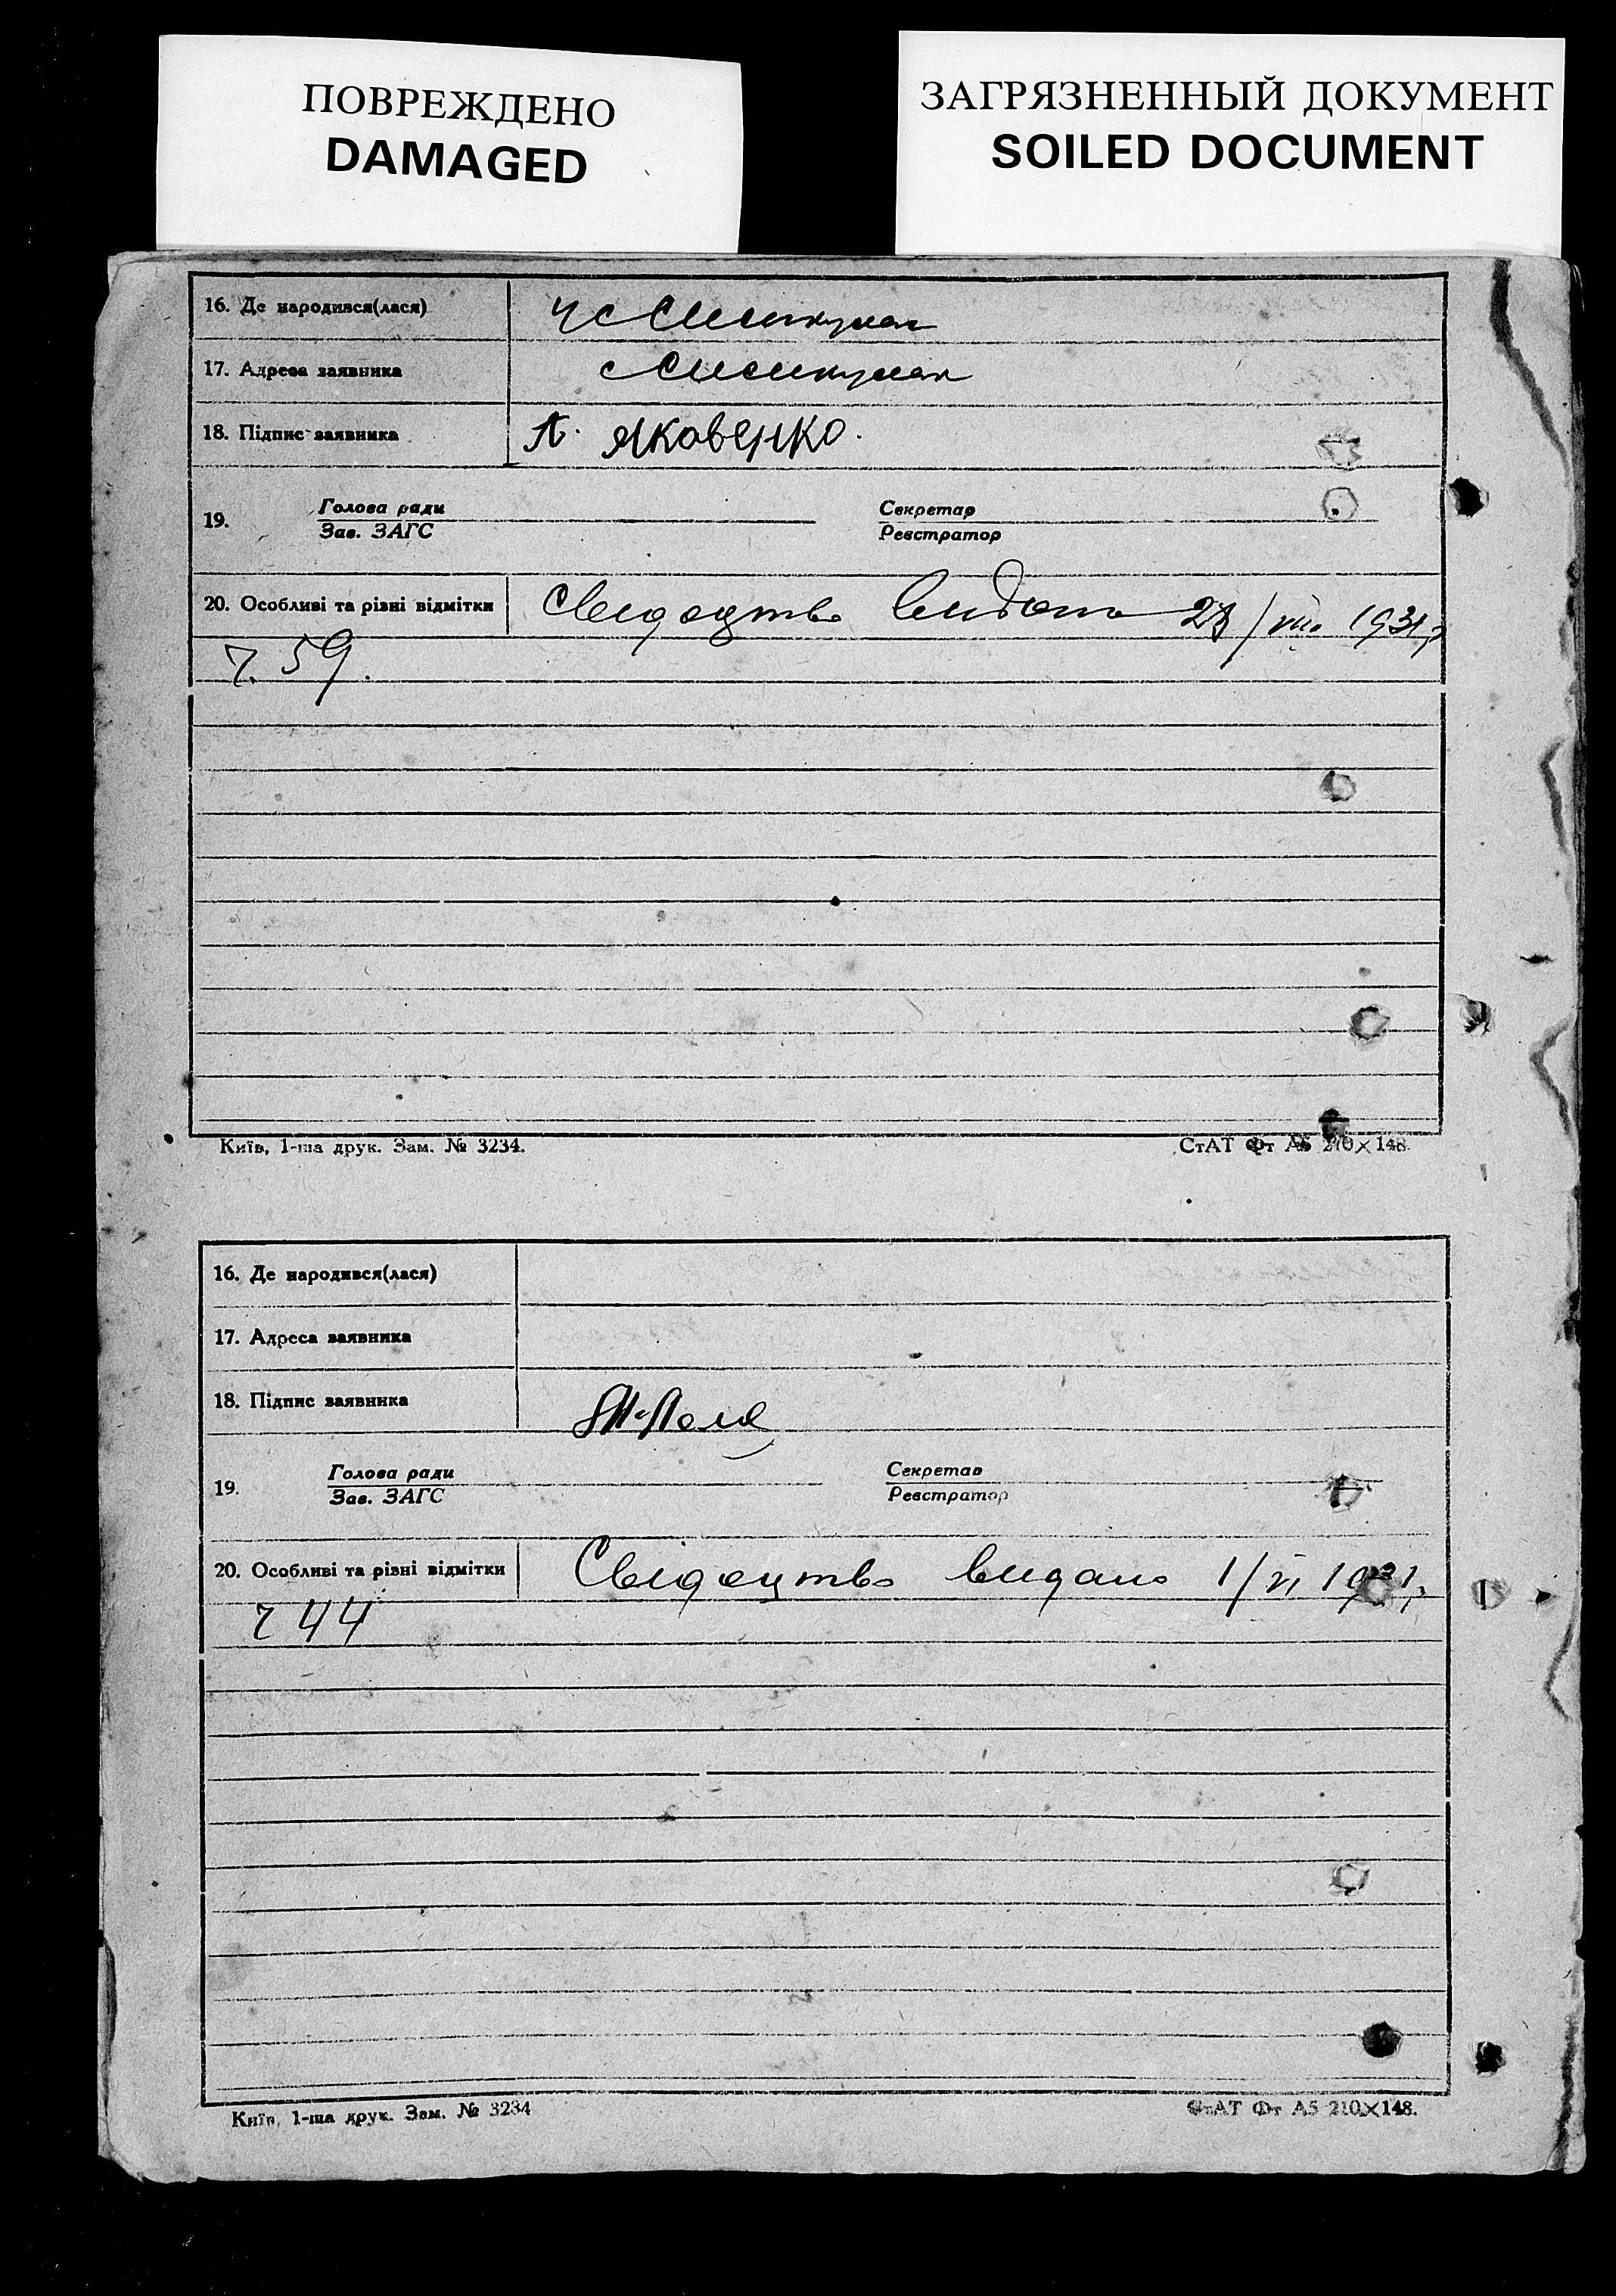 ПОВРЕЖДЕНО
DAMAGED
ЗАГРЯЗНЕННЫЙ ДОКУМЕНТ
SOILED DOCUMENT
16. Де народився(лася)
17. Адреса заявника
18. Підпис заявника Л. Яковенко.
19. Голова ради Секретар
Зав. ЗАГС Реєстратор
20. Особливі та різні відмітки Свідоцтво видано 28/VIII 1931 р
ч. 59.
Київ, 1-ша друк. Зам. № 3234. СтАТ Фт А5 210×148.
16. Де народився(лася)
17. Адреса заявника
18. Підпис заявника
19. Голова ради Секретар
Зав. ЗАГС Реєстратор
20. Особливі та різні відмітки Свідоцтво видано 1/VI 1931 р
ч 44
Київ, 1-ша друк. Зам. № 3234 СтАТ Фт А5 210×148.